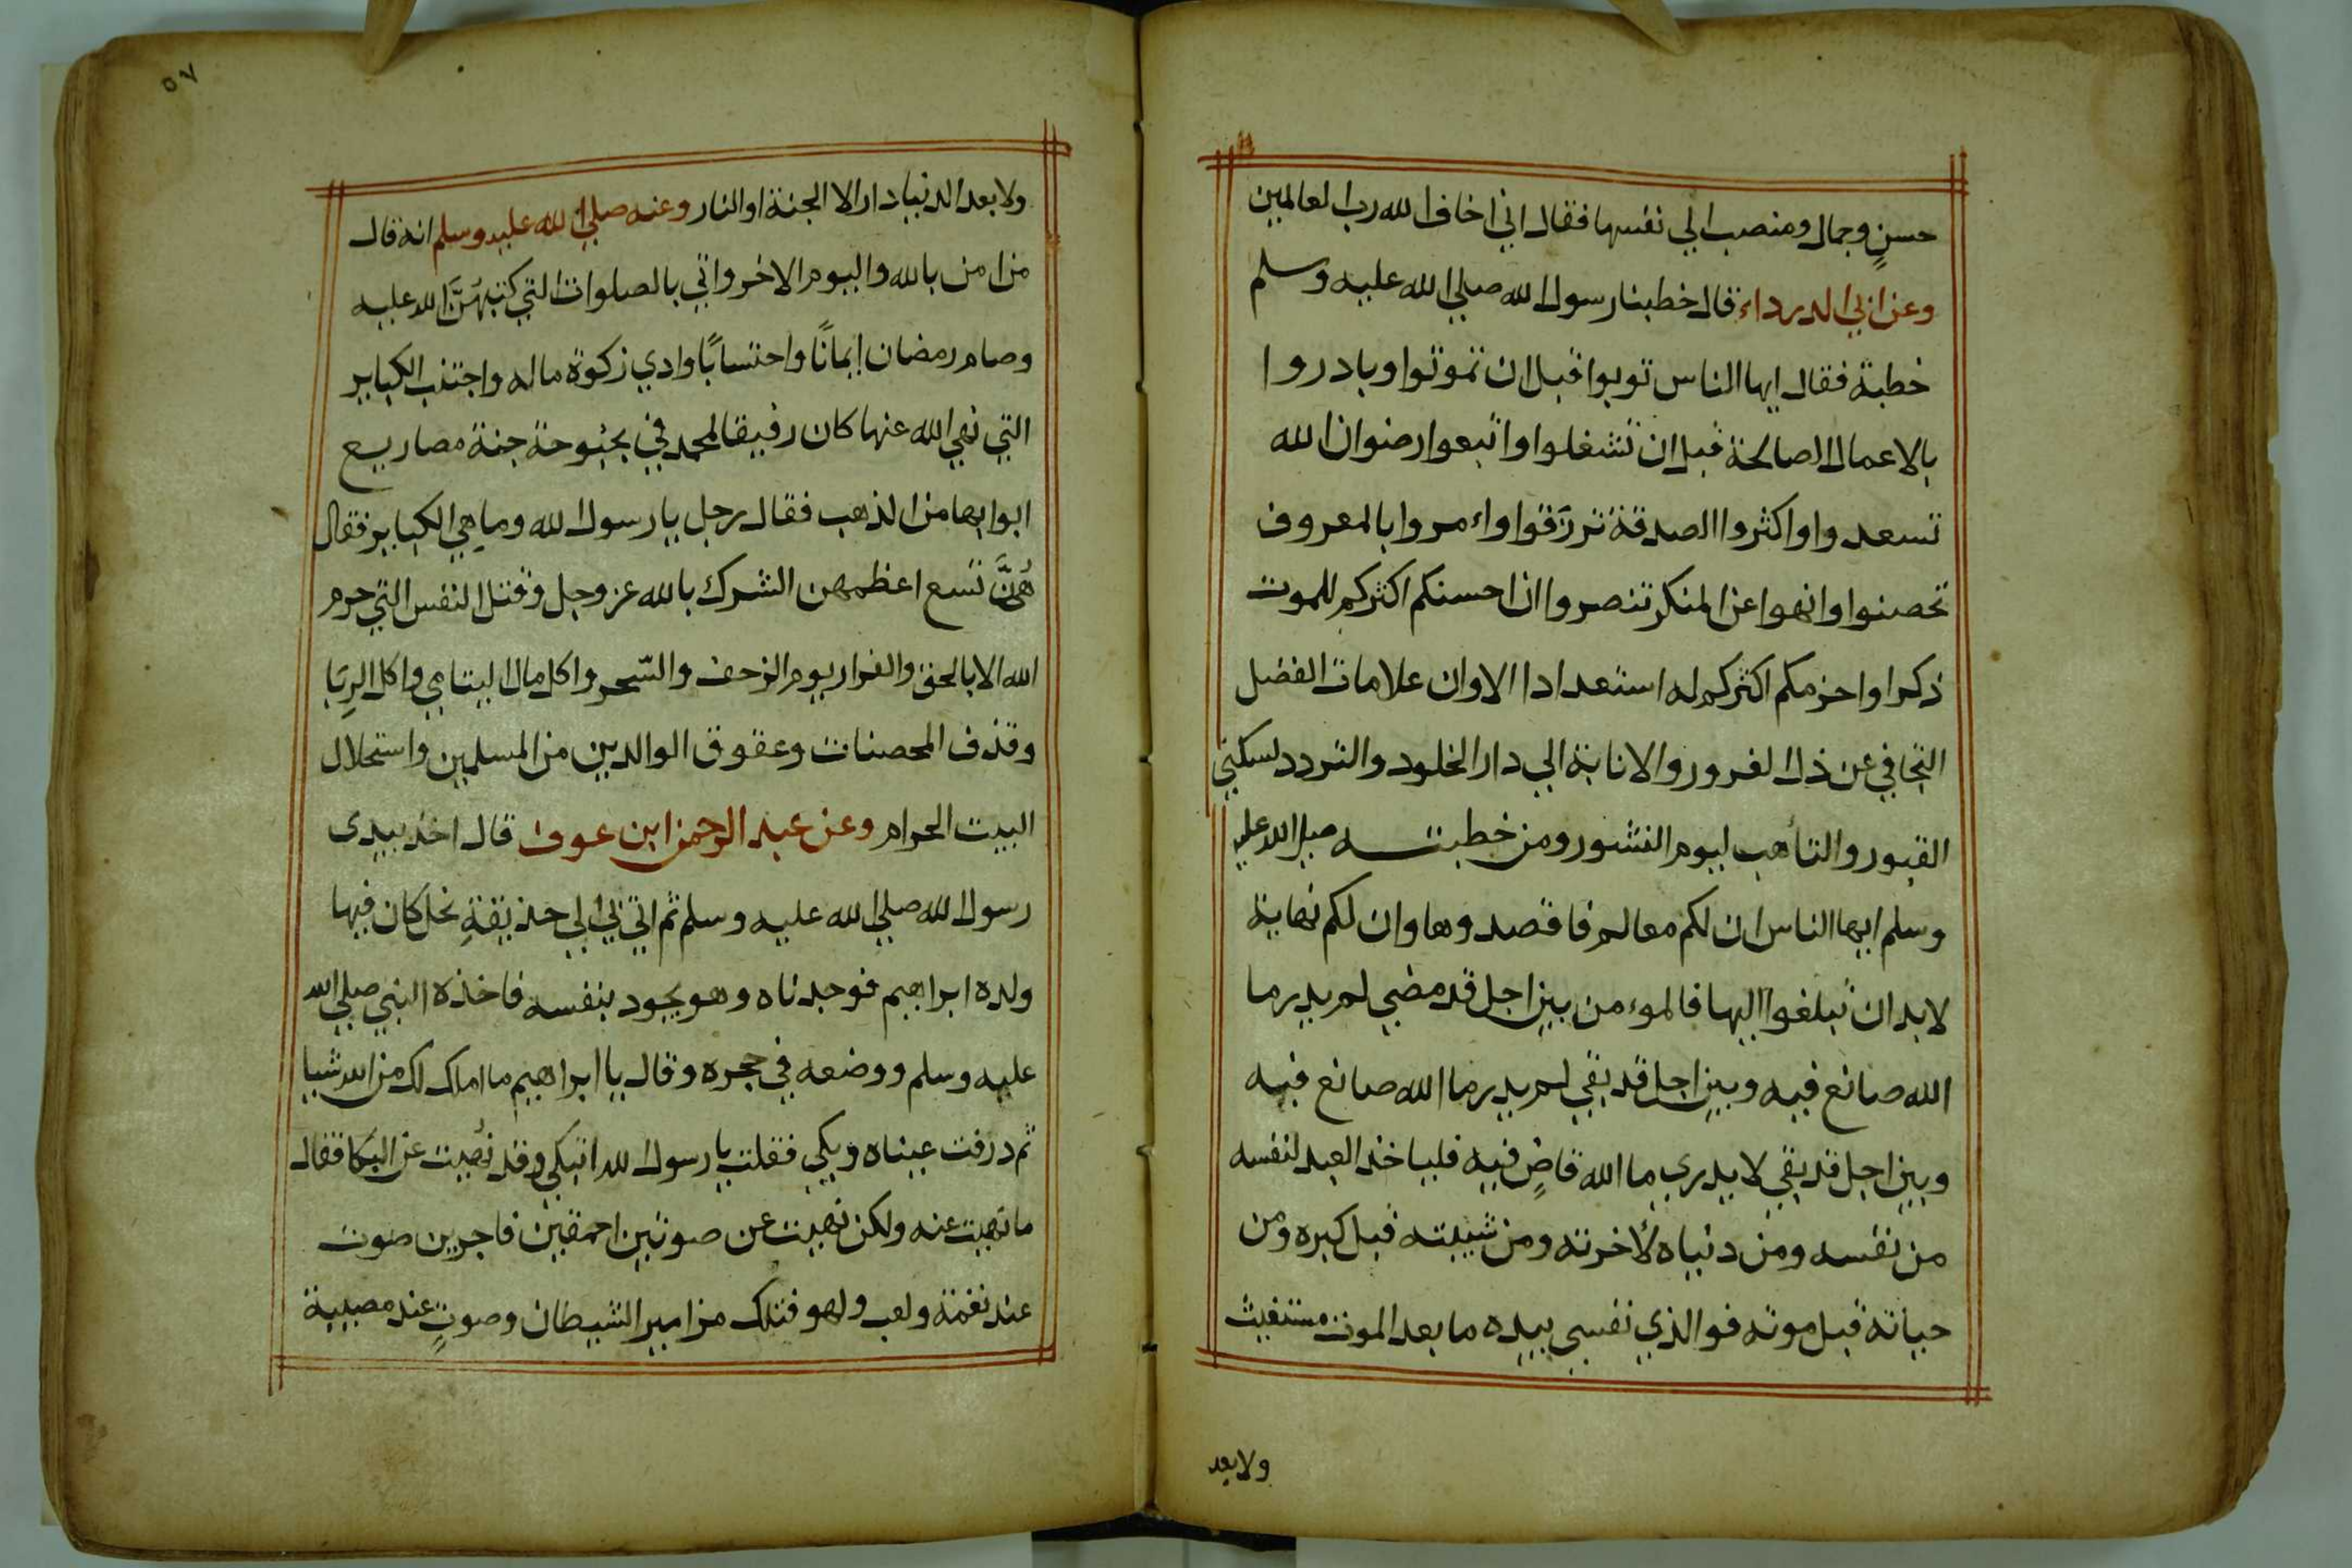 حسنٍ وجمال ومنصب الي نفسها فقال اني اخاف الله رب العالمين
وعن ابي الدرداء قال خطبنا رسول الله صلي الله عليه وسلم
خطبة فقال ايها الناس توبوا قبل ان تموتوا وبادروا
بالاعمال الصالحة قبل ان تشغلوا واتبعوا رضوان الله
تسعدوا واكثروا الصدقة ترزقوا واءمروا بالمعروف
تحصنوا وانهوا عن المنكر تنصروا ان احسنكم اكثركم للموت
ذكرا واحزمكم اكثركم له استعدادا الاوان علامات الفضل
التجافي عن دار الغرور والانابة الي دار الخلود والتردد لسكني
القبور والتأهب ليوم النشور ومن خطبته صلي الله عليه
وسلم ايها الناس ان لكم معالم فاقصدوها وان لكم نهاية
لابد ان تبلغوا اليها فالموءمن بين اجل قد مضي لم يدر ما
الله صانع فيه وبين اجل قد بقي لم يدر ما الله صانع فيه
وبين اجل قد بقي لا يدري ما الله قاضٍ فيه فلياخذ العبد لنفسه
من نفسه ومن دنياه لأخرته ومن شبيبته قبل كبره ومن
حياته قبل موته فوالذي نفسي بيده ما بعد الموت مستغيث
ولابعد
٥٧
ولا بعد الدنيا دار الا الجنة او النار وعنه صلي الله عليه وسلم انه قال
من امن بالله واليوم الاخر واتي بالصلوات التي كتبهُنَّ الله عليه
وصام رمضان إيمانًا واحتسابًا وادي زكوة ماله واجتنب الكباير
التي نهي الله عنها كان رفيقا لمحمد في بحبوحة جنة مصاريع
ابوابها من الذهب فقال رجل يا رسول الله وما هي الكباير فقال
هُنَّ تسع اعظمهن الشرك بالله عز وجل وقتل النفس التي حرم
الله الا بالحق والفرار يوم الزحف والسّحر واكل مال اليتامي واكل الرِبَا
وقذف المحصنات وعقوق الوالدين من المسلمين واستحلال
البيت الحرام وعن عبد الرحمن ابن عوف قال اخذ بيدى
رسول الله صلي الله عليه وسلم ثم اتي بي الي حذيقةِ نخل كان فيها
ولده ابراهيم فوجدناه وهو يجود بنفسه فاخذه النبي صلي الله
عليه وسلم ووضعه في حجره وقال يا ابراهيم ما املك لك من الله شيا
ثم درفت عيناه وبكي فقلت يا رسول الله اتبكي وقد نُهيت عن البكا فقال
ما نهيت عنه ولكن نهيت عن صوتين احمقين فاجرين صوت
عند نغمة ولعب ولهو فتلك مزامير الشيطان وصوتٍ عند مصيبة